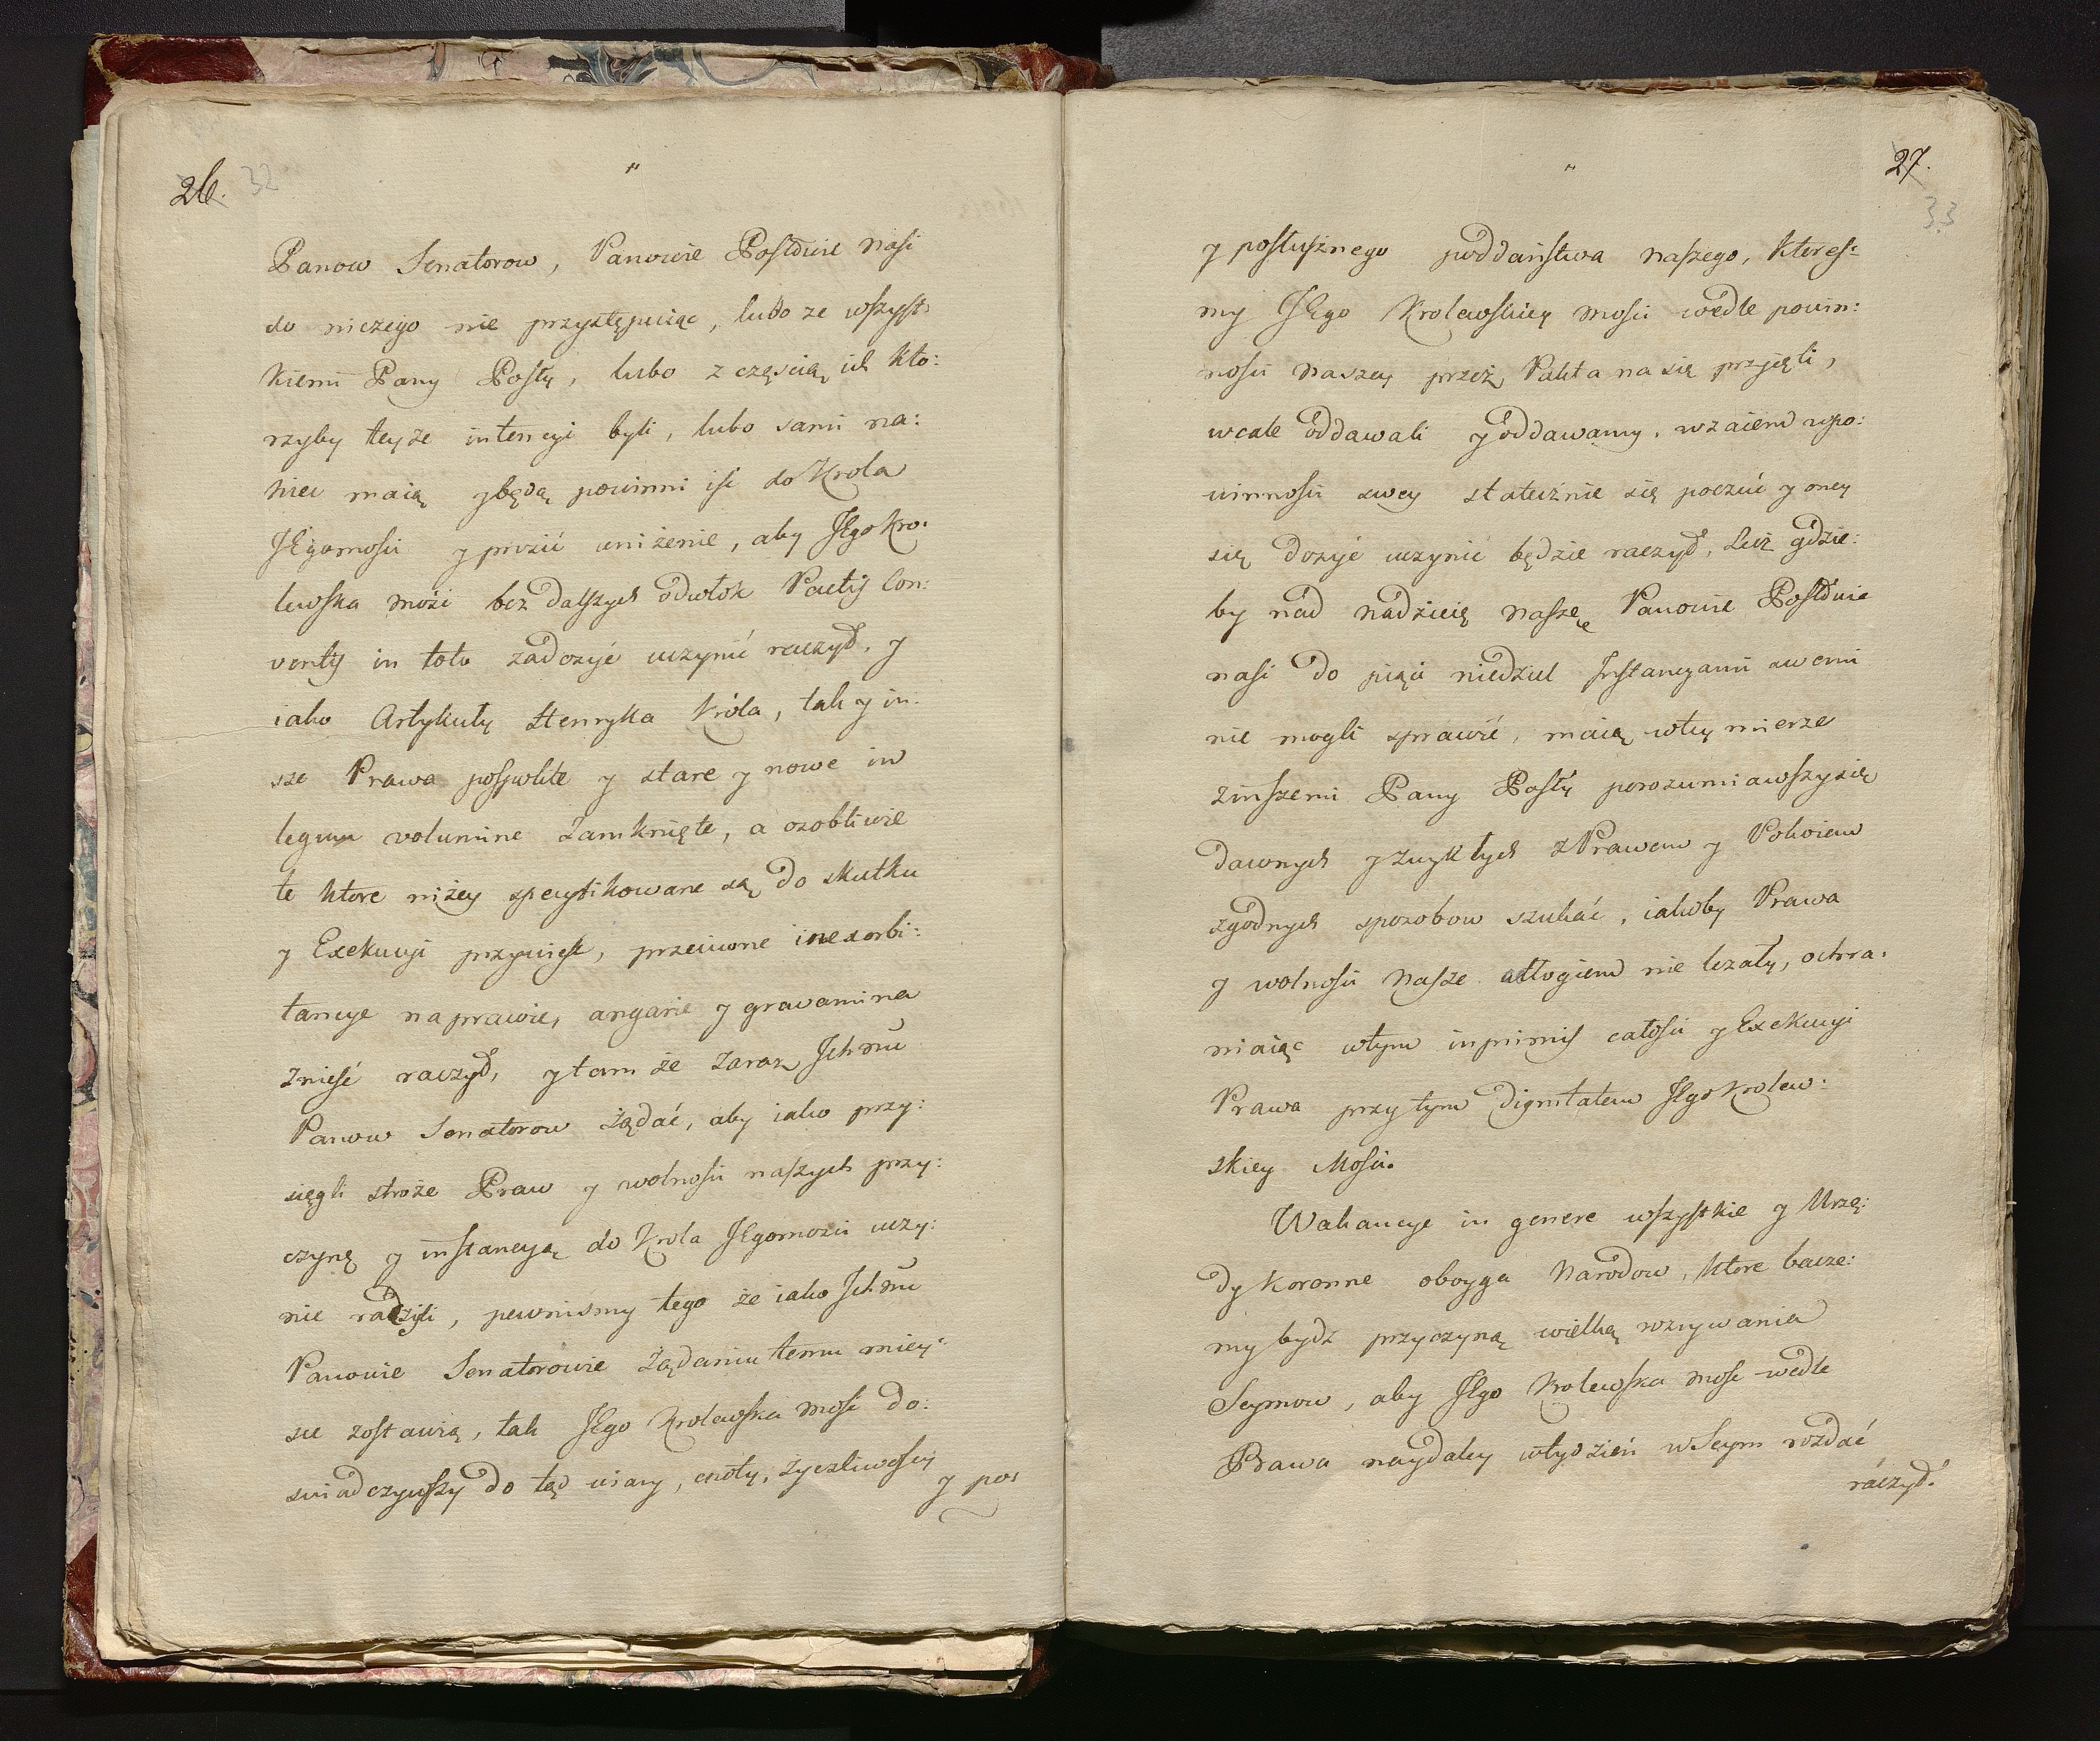 26. 32
Panow Senatorow, Panowie Posłowie nasi
do niczego nie przystępuiąc, lubo ze wszyst:
kiemi Pany Posły, lubo z częscią ich kto:
rzyby teyże intencyi byli, lubo sami na:
wet maią y będą powinni iść do Krola
JEgomosci y prosić uniżenie, aby JEgo Kro:
lewska mość bez dalszych odwłok Pactis Con:
ventis in toto zadosyć uczynić raczył, y
iako Artykuły Henryka Króla, tak y in:
sze Prawa pospolite y stare y nowe in
legum volumine zamknięte, a osobliwie
te ktore niżey specyfikowane są do skutku
y Exekucyi przywieść, przeciwne i nexorbi:
tancye naprawić, angarie y gravamina
znieść raczył, y tam że zaraz Ichmć
Panow Senatorow żądać, aby iako przy:
sięgli stroże Praw y wolności naszych przy:
czynę y instancyą do Krola JEgomosci uczy:
nić raczyli, pewnismy tego że iako Ichmć
Panowie Senatorowie żądaniu temu miey:
sce zostawią, tak JEgo Krolewska mość do:
swiadczywszy do tąd wiary, cnoty, życzliwości
y po:
27.
33
y posłusznego poddaństwa naszego, ktores:
my JEgo Krolewskiey mosci wedle powin:
nosci naszey przez Pakta na się przyięli,
wcale oddawali y oddawamy, wzaiem w po:
winnosci swey statecznie się poczuć y oney
się dosyć uczynić będzie raczył, Lecz gdzie:
by nad nadzieię naszę Panowie Posłowie
nasi do pięci niedziel Instancyami swemi
nie mogli sprawić, maią w tey mierze
z inszemi Pany Posły porozumiawszy się
dawnych y zwykłych z Prawem y Pokoiem
zgodnych sposobow szukać, iakoby Prawa
y wolności nasze odłogiem nie leżały, ochra:
niaiąc w tym inprimis całości y Exekucyi
Prawa przy tym dignitatem JEgo Krolew:
skiey Mosci.
Wakancye in genere wszystkie y Urzę:
dy koronne oboyga Narodow, ktore bacze:
my bydz przyczyną wielką rozrywania
Seymow, aby JEgo Krolewska mość wedle
Prawa naydaley w tydzień w Seym rozdać
raczył.